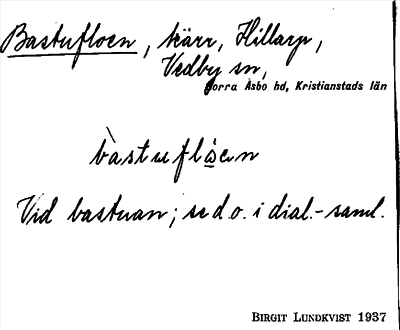 Bastufloen, kärr, Hillarp,
Vedby sn,
Norra Åsbo hd, Kristianstads län
bàstuflǫen
Vid bastuan; se d.o. i dial.-saml.
BIRGIT LUNDKVIST 1937